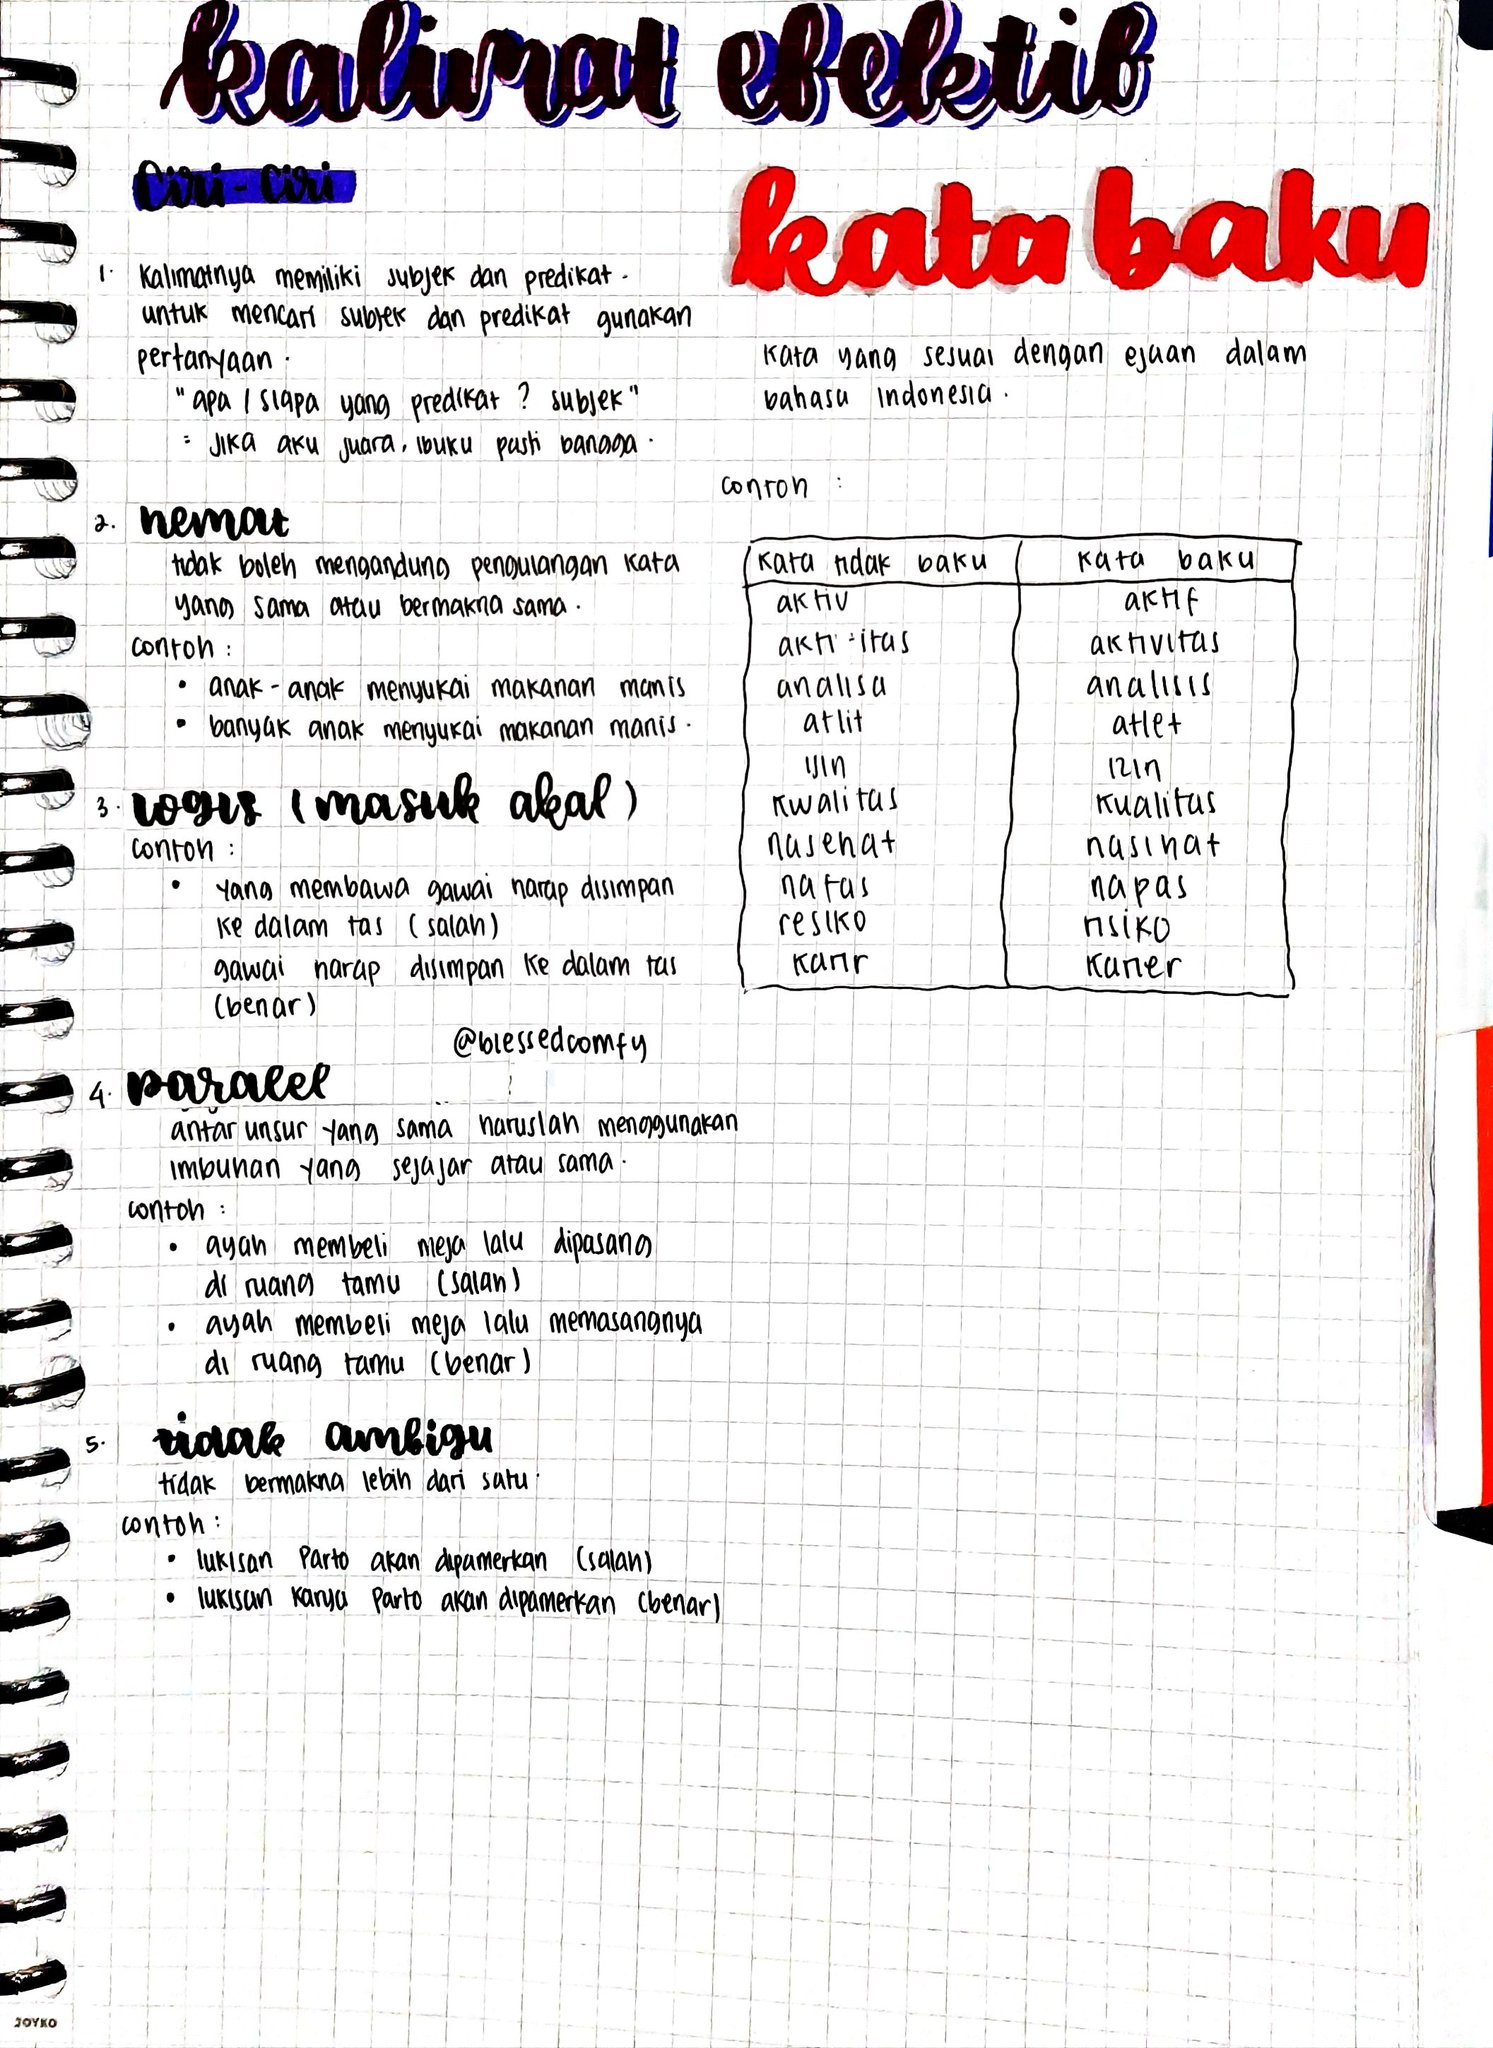 kalimat efektif
Ciri-Ciri
1. Kalimatnya memiliki subjek dan predikat.
untuk mencari subjek dan predikat gunakan
pertanyaan.
"apa / siapa yang predikat ? subjek"
= Jika aku juara, ibuku pasti bangga.
2. hemat
tidak boleh mengandung pengulangan kata
yang sama atau bermakna sama.
contoh :
• anak-anak menyukai makanan manis
• banyak anak menyukai makanan manis.
3. logis (masuk akal)
contoh :
• yang membawa gawai harap disimpan
ke dalam tas (salah)
gawai harap disimpan ke dalam tas
(benar)
@blessedcomfy
4. paralel
antar unsur yang sama haruslah menggunakan
imbuhan yang sejajar atau sama.
contoh :
• ayah membeli meja lalu dipasang
di ruang tamu (salah)
• ayah membeli meja lalu memasangnya
di ruang tamu (benar)
5. tidak ambigu
tidak bermakna lebih dari satu.
contoh :
• lukisan Parto akan dipamerkan (salah)
• lukisan karya Parto akan dipamerkan (benar)
kata baku
kata yang sesuai dengan ejaan dalam
bahasa Indonesia.
contoh :
kata tidak baku kata baku
aktiv aktif
akti-itas aktivitas
analisa analisis
atlit atlet
ijin izin
kwalitas kualitas
nasehat nasihat
nafas napas
resiko risiko
karir karier
JOYKO